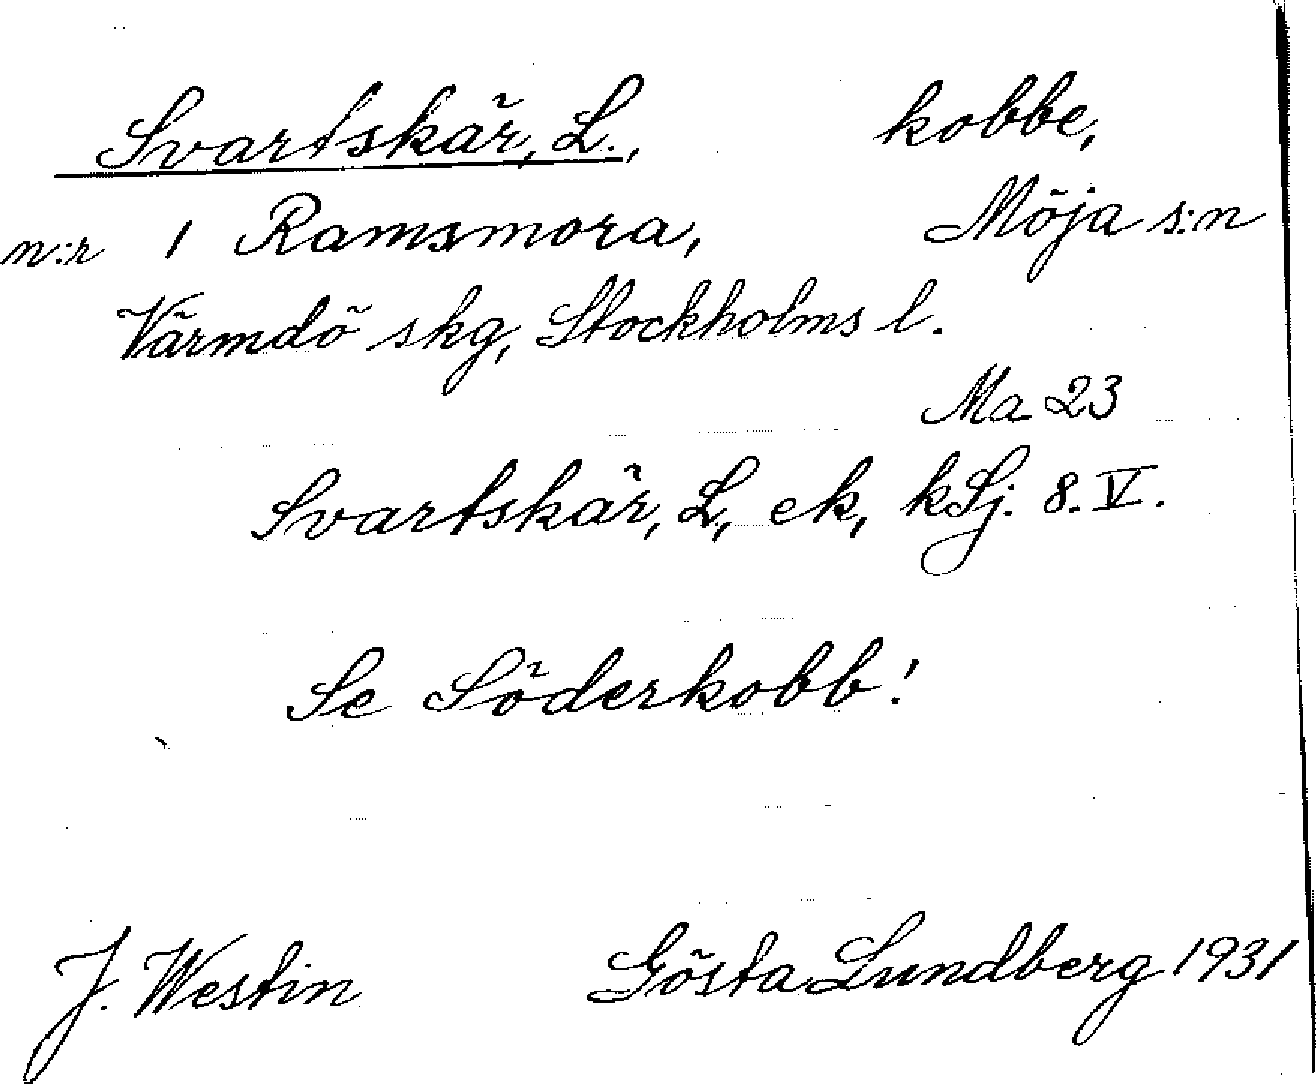 Svartskär, L., kobbe,
n:r 1 Ramsmora, Möja s:n
Värmdö skg, Stockholms l.
Ma 23
Svartskär, L, ek, kSj. 8. V.
Se Söderkobb!
J. Westin Gösta Lundberg 1931